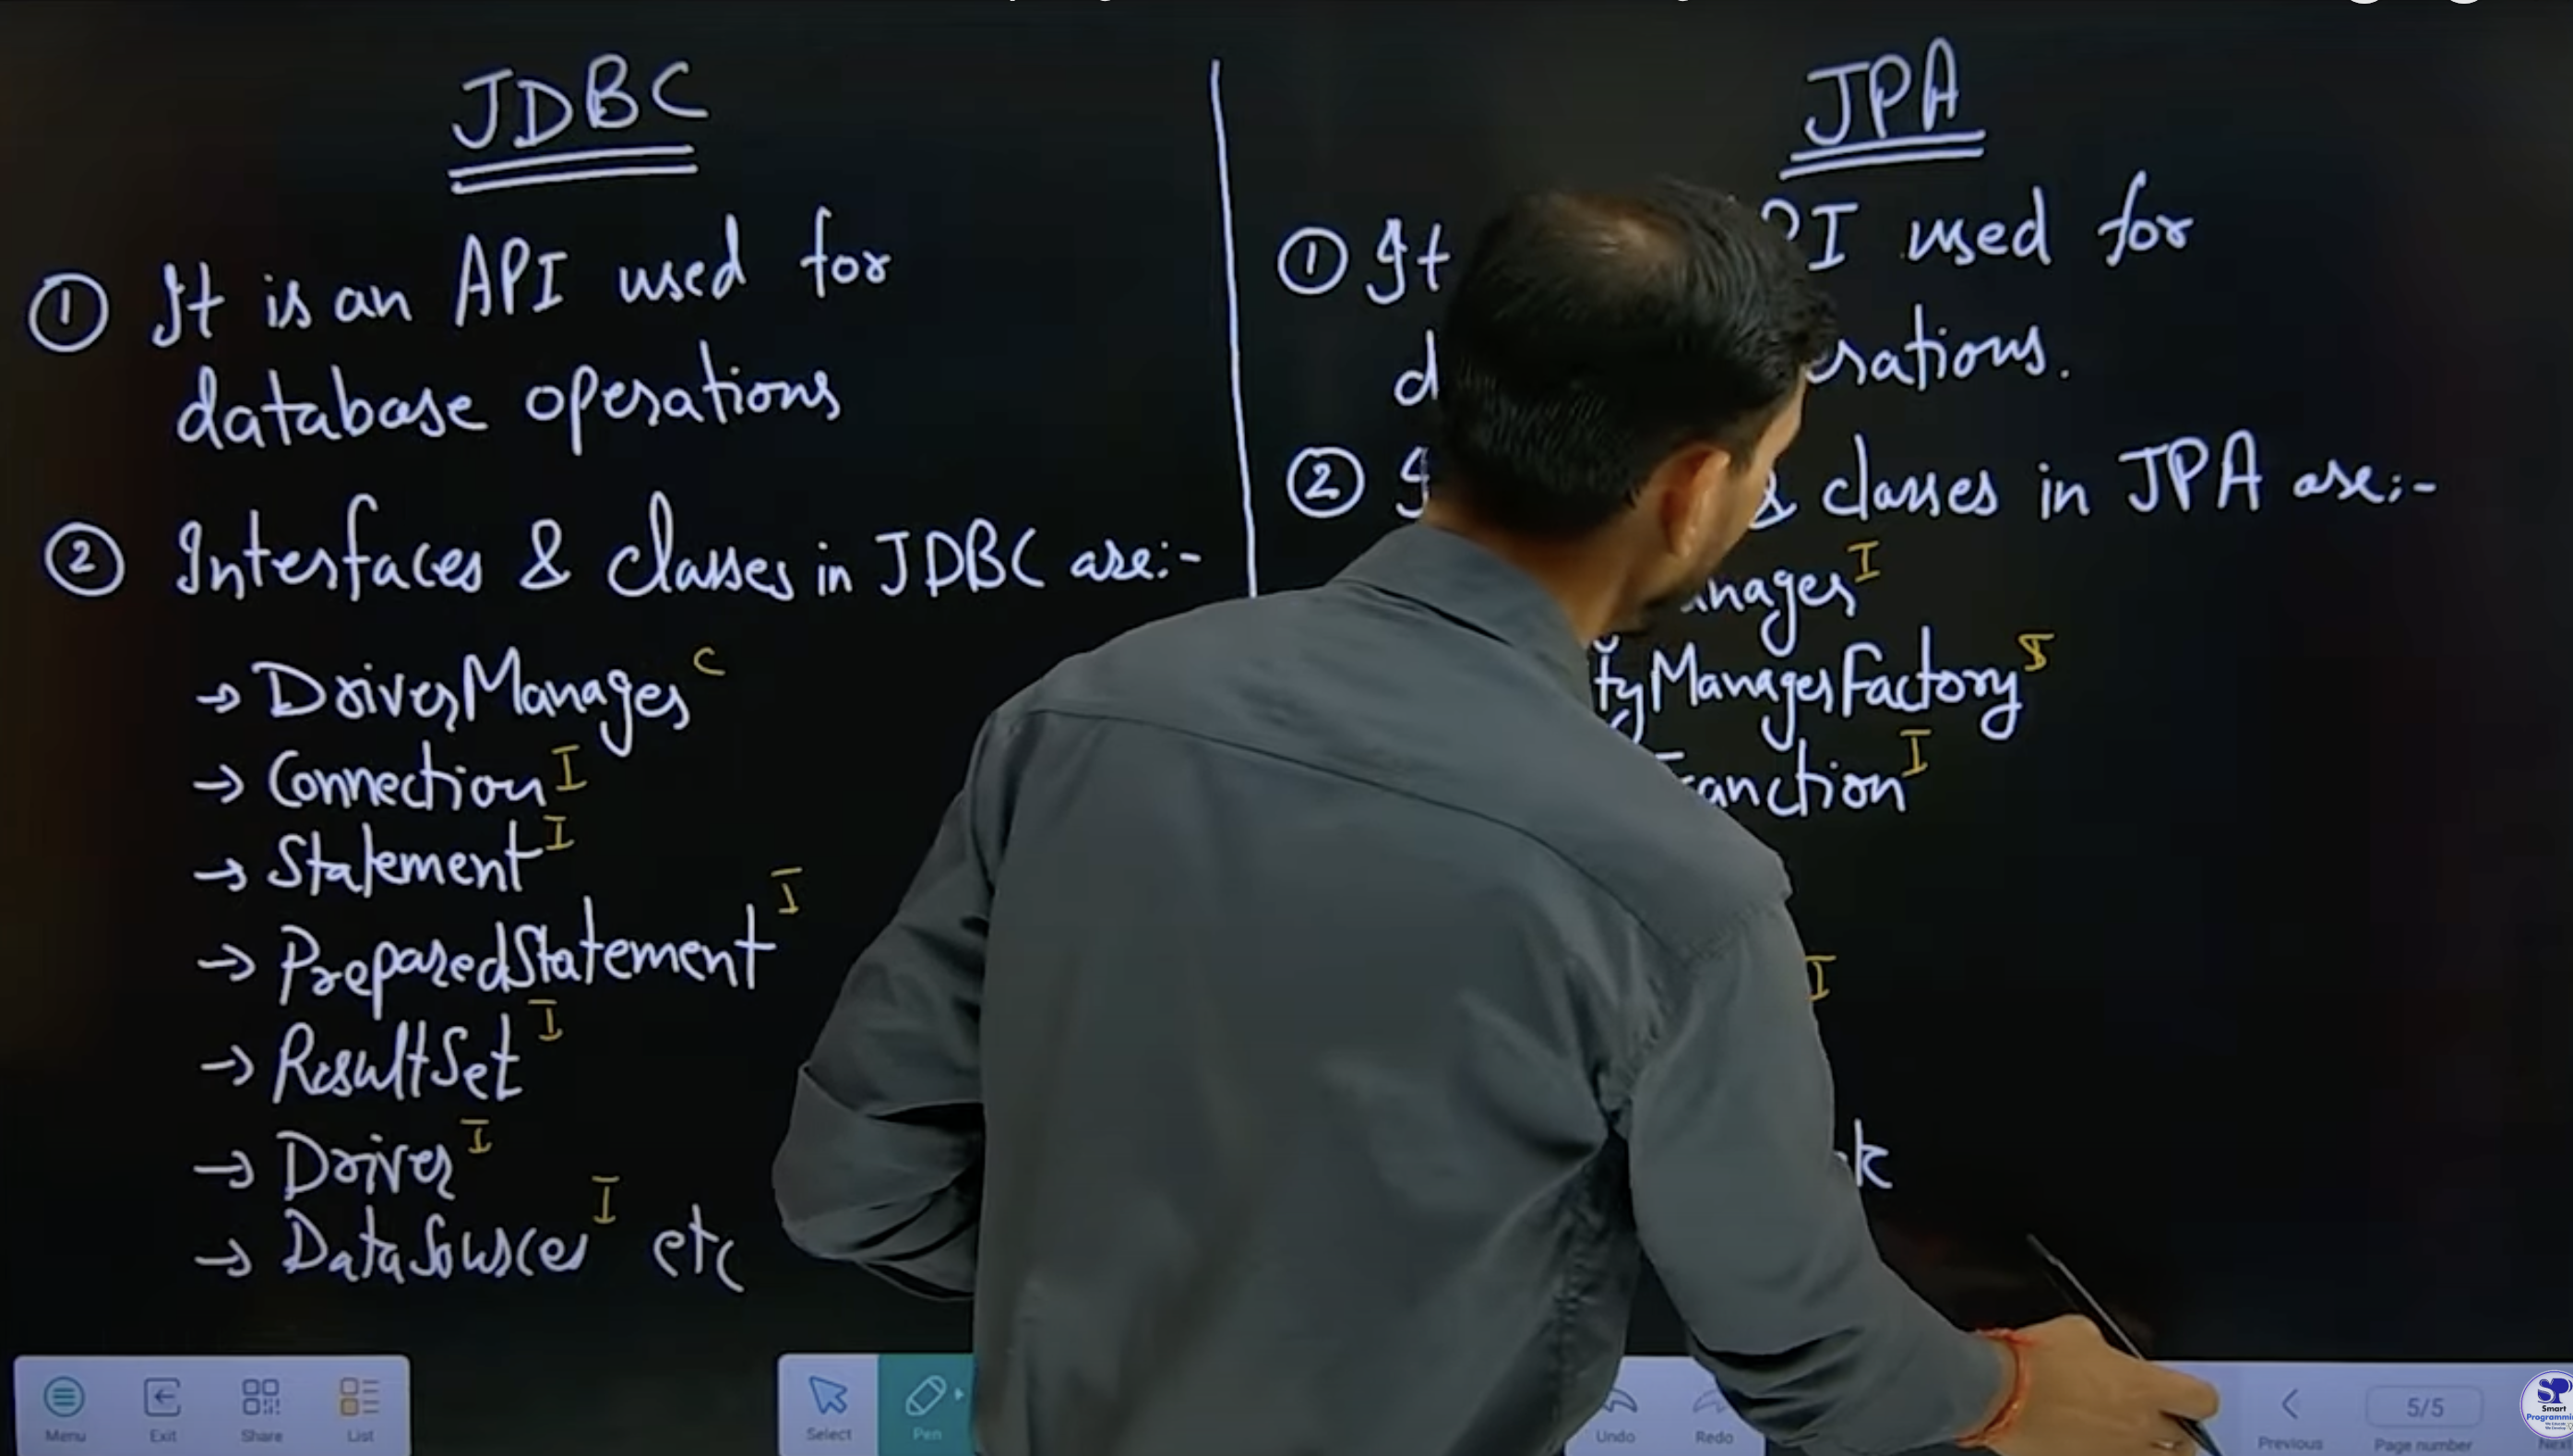 JDBC
① It is an API used for
database operations
② Interfaces & classes in JDBC are:-
→ DriverManager C
→ Connection I
→ Statement I
→ PreparedStatement I
→ ResultSet I
→ Driver I
→ DataSources I etc
JPA
① It PI used for
rations.
② & classes in JPA are:-
anager I
tyManagerFactory
ranction I
I
k
Menu
Exit
Share
List
Select
Pen
Undo
Redo
Previous
5/5
Page number
SP
Smart
Programmi